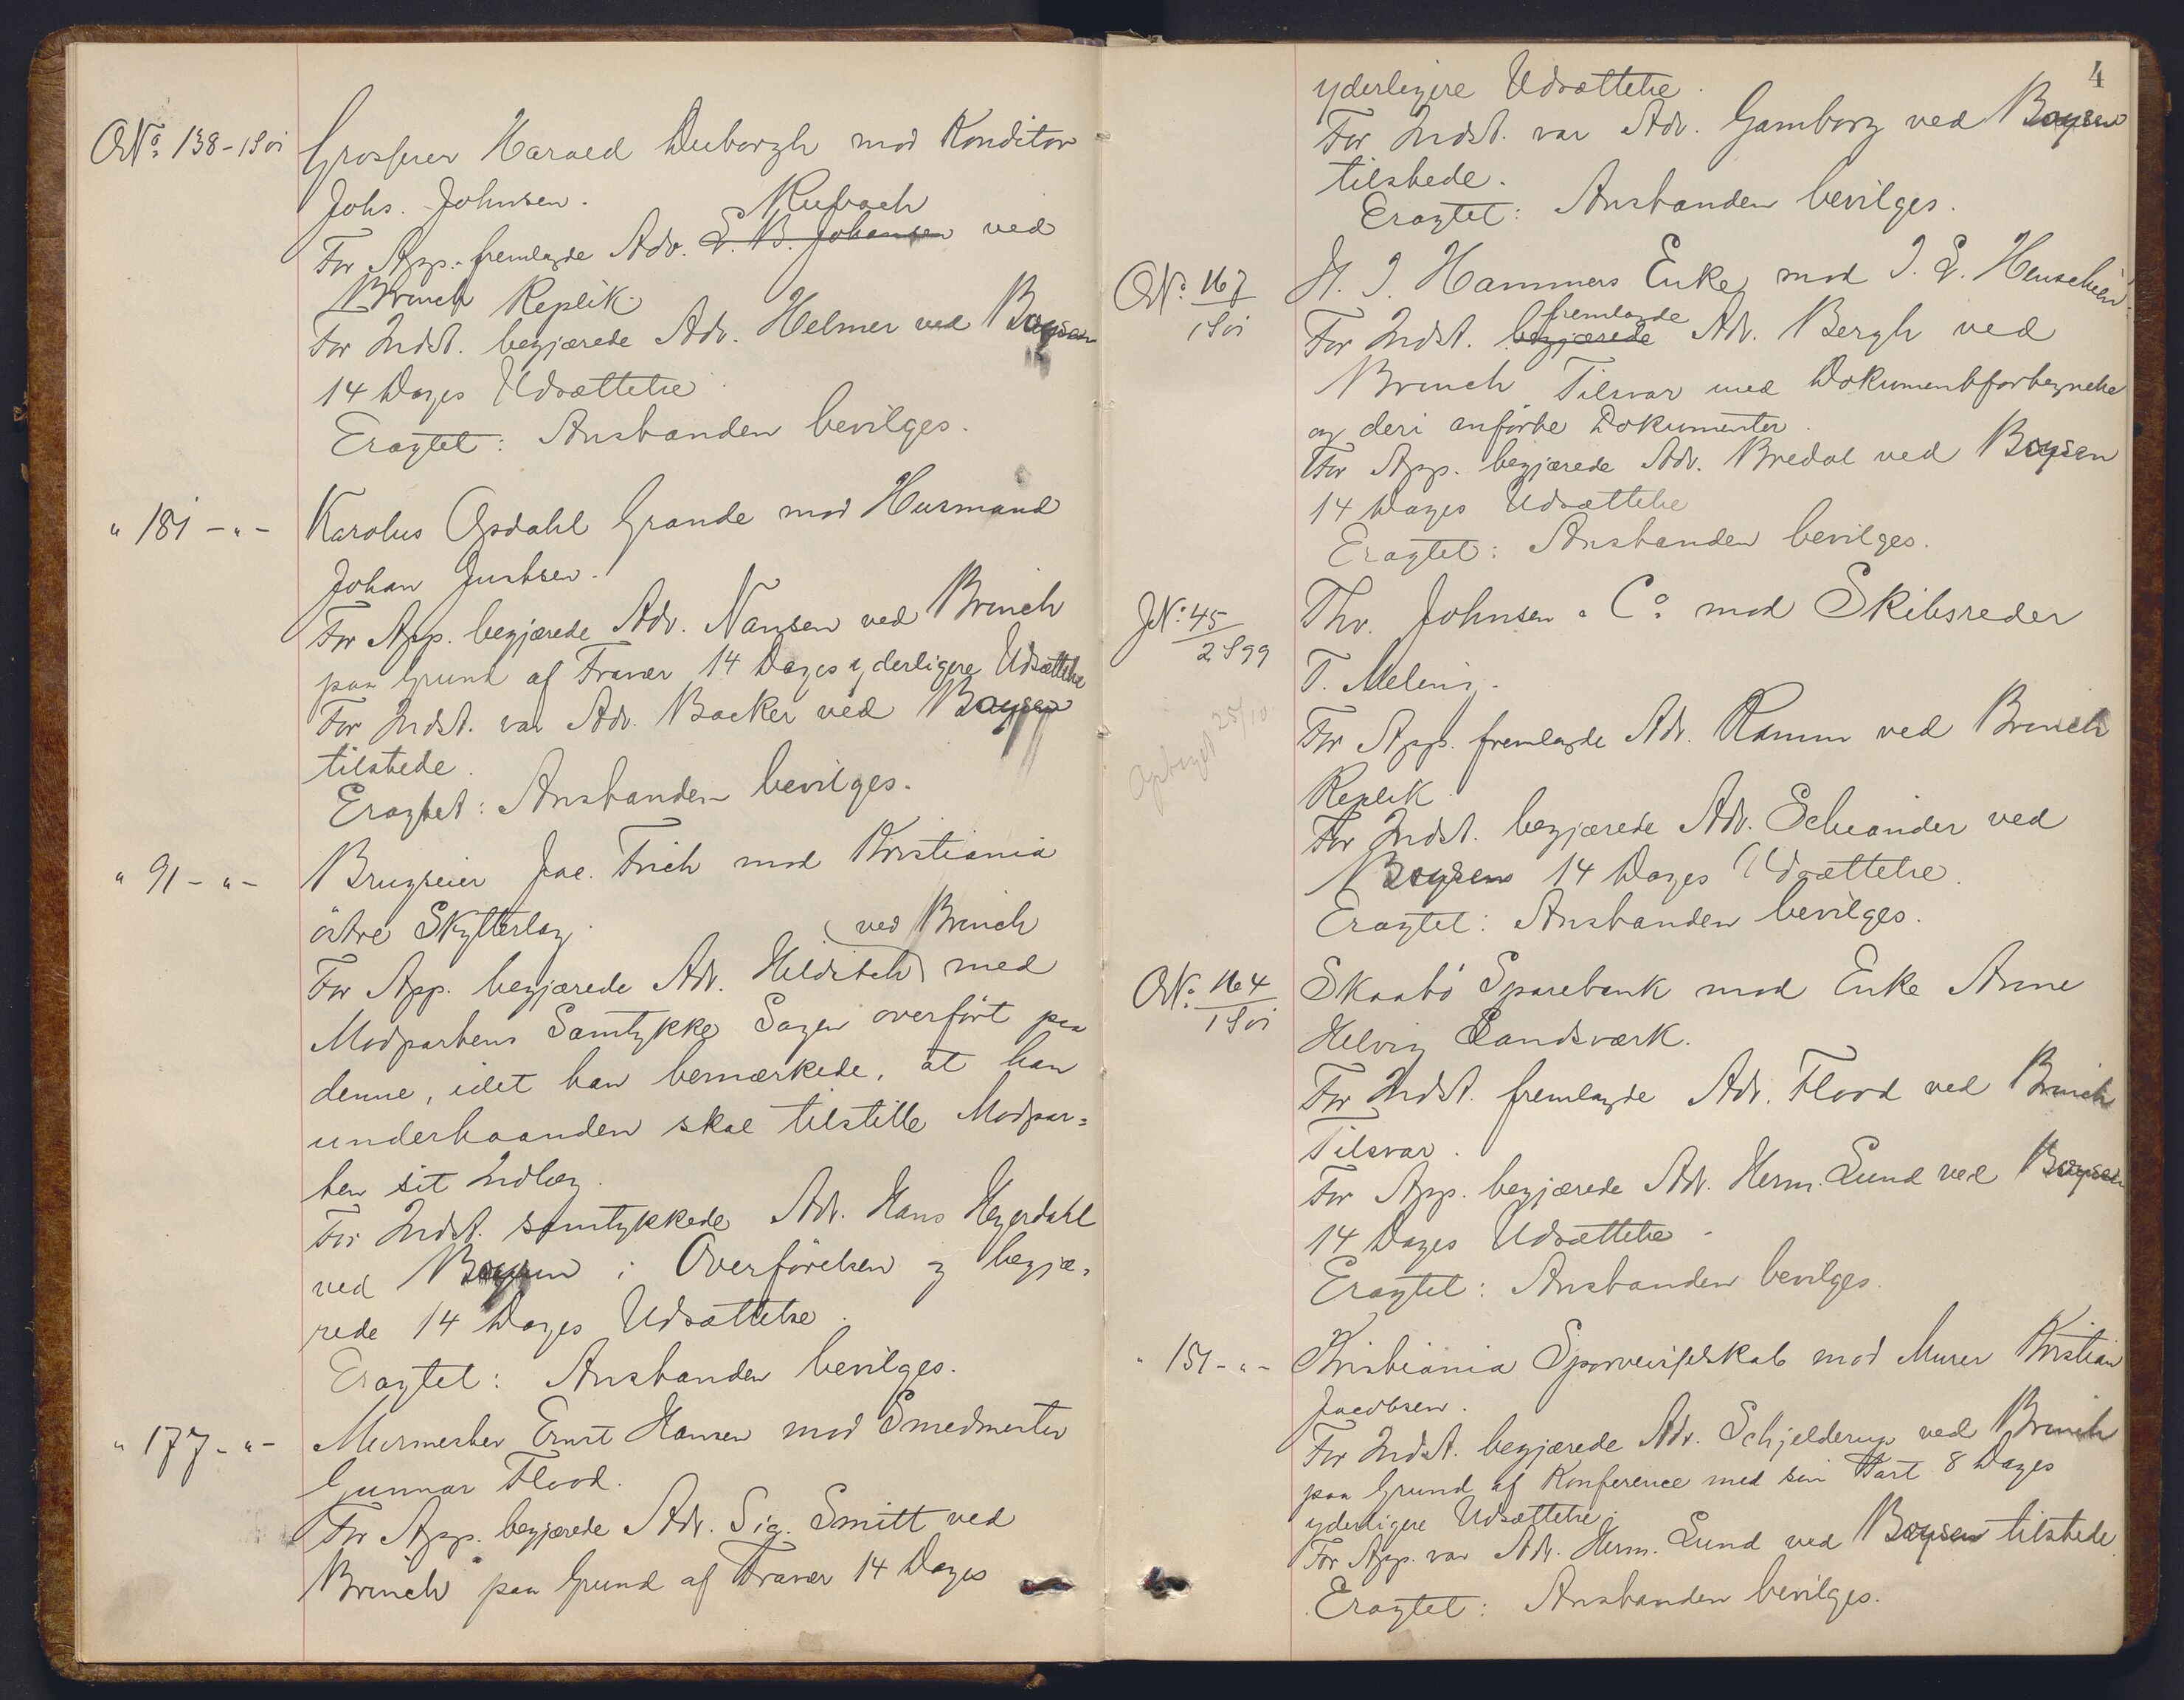 O.No. 138 - 1901 Grosserer Harald Duborgh mod Konditor
Johs. Johnsen.
Rubach
For App. fremlagde Adv. L. B. Johansen ved
Brinch Replik.
For Indst. begjærede Adv. Helmer ved Boysen
14 Dages Udsættelse
Eragtet: Anstanden bevilges.
" 181 - " - Karolus Opdahl Grande mod Husmand
Johan Justsen.
For App. begjærede Adv. Nansen ved Brinch
paa Grund af Fravær 14 Dages yderligere Udsættelse
For Indst. var Adv. Backer ved Boysen
tilstede.
Eragtet: Anstanden bevilges.
" 91 - " - Brugseier Jac. Frich mod Kristiania
östre Skytterlag.
ved Brinch
For App. begjærede Adv. Hilditch med
Modpartens Samtykke Sagen overfört paa
denne, idet han bemærkede, at han
underhaanden skal tilstille Modpar=
ten sit Indlæg.
For Indst. samtykkede Adv. Hans Heyerdahl
ved Boysen i Overförelsen og begjæ=
rede 14 Dages Udsættelse.
Eragtet: Anstanden bevilges.
" 177 - " - Murmester Ernst Hansen mod Smedmester
Gunnar Flood.
For App. begjærede Adv. Sig. Smitt ved
Brinch paa Grund af Fravær 14 Dages
4
yderligere Udsættelse.
For Indst. var Adv. Gamborg ved Boysen
tilstede.
Eragtet: Anstanden bevilges.
O.No. 167/1901 H. J. Hammers Enke mod J. L. Henschien.
fremlagde
For Indst. begjærede Adv. Bergh ved
Brinch Tilsvar med Dokumentfortegnelse
og deri anförte Dokumenter.
For App. begjærede Adv. Bredal ved Boysen
14 Dages Udsættelse
Eragtet: Anstanden bevilges.
J.No. 45/2 S 99 Thv. Johnsen & Co. mod Skibsreder
T. Meling.
25/10
For App. fremlagde Adv. Ramm ved Brinch
Replik.
For Indst. begjærede Adv. Scheander ved
Boysen 14 Dages Udsættelse.
Eragtet: Anstanden bevilges.
O.No. 164/1901 Skaatö Sparebank mod Enke Anne
Helvig Landsværk.
For Indst. fremlagde Adv. Flood ved Brinch
Tilsvar.
For App. begjærede Adv. Herm. Lund ved Boysen
14 Dages Udsættelse.
Eragtet: Anstanden bevilges.
" 151 - " - Kristiania Sporveisselskab mod Murer Kristian
Jacobsen.
For Indst. begjærede Adv. Schjelderup ved Brinch
paa Grund af Konference med sin Part 8 Dages
yderligere Udsættelse.
For App. var Adv. Herm. Lund ved Boysen tilstede.
Eragtet: Anstanden bevilges.